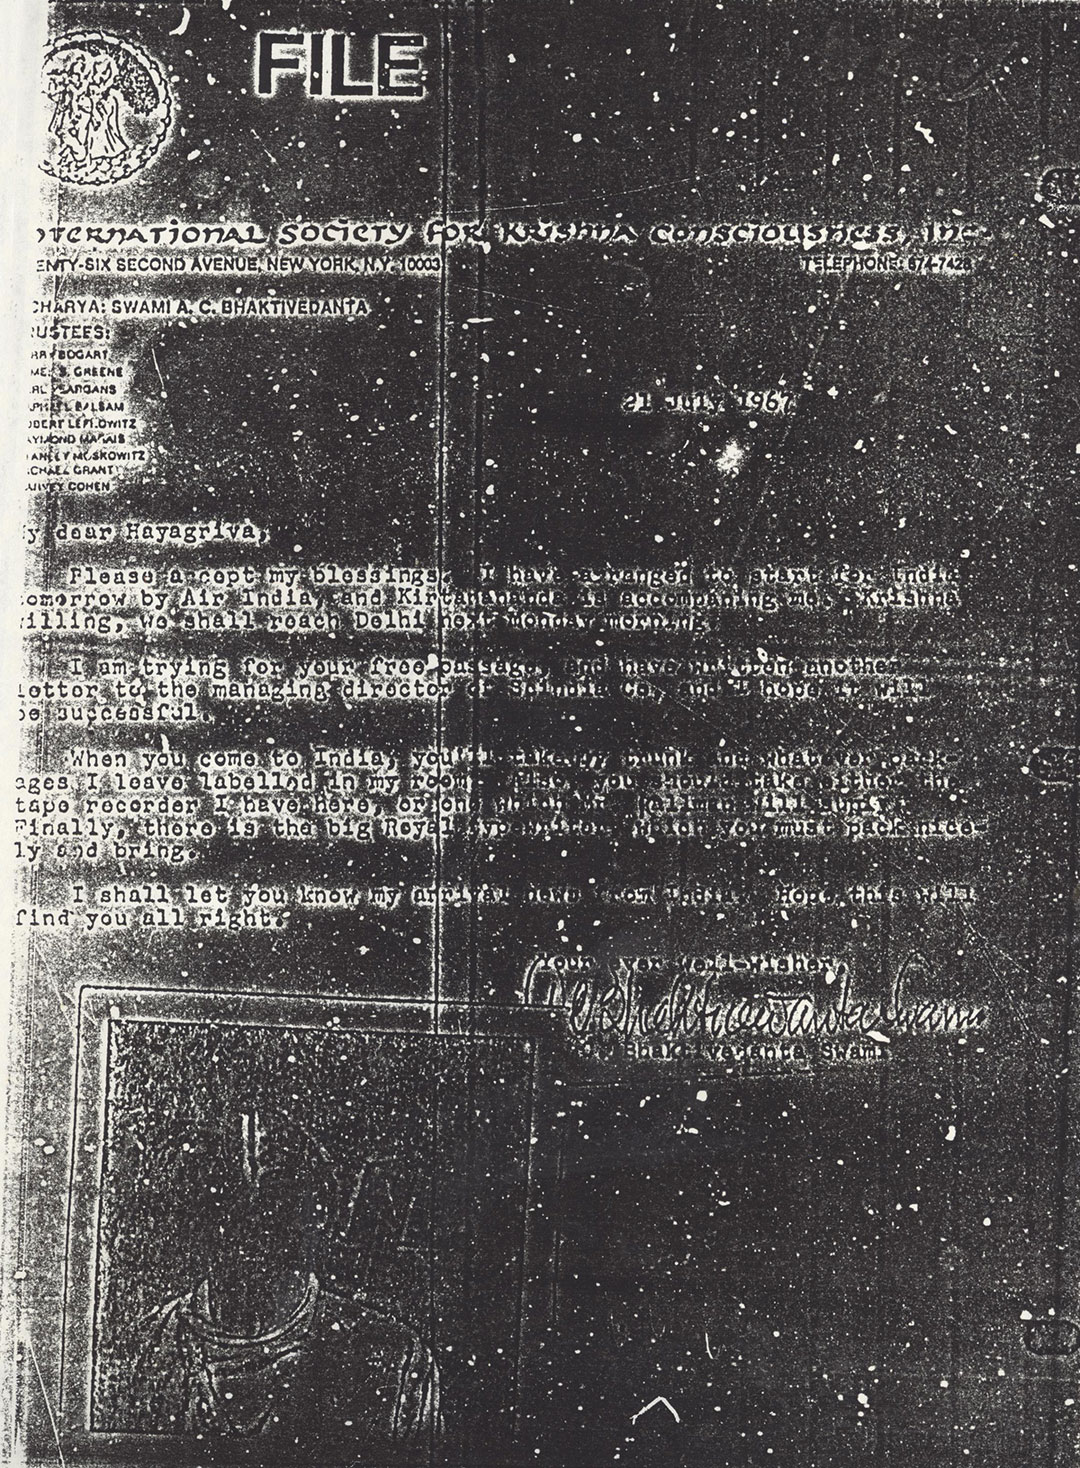 FILE
NTERNATIONAL SOCIETY FOR KRISHNA CONSCIOUSNESS, INC.
ENTY-SIX SECOND AVENUE, NEW YORK, N.Y. 10003 TELEPHONE: 674-7428
CHARYA: SWAMI A. C. BHAKTIVEDANTA
USTEES:
BOGART
S. GREENE
RL YEARGANS
BALSAM
OBERT LEFKOWITZ
AYMOND MARAIS
ANLEY MOSKOWITZ
CHAEL GRANT
ARVEY COHEN
21 July, 1967
y dear Hayagriva,
Please accept my blessings. I have arranged to start for India
omorrow by Air India, and Kirtanananda is accompaning me. Krishna
illing, we shall reach Delhi next Monday morning.
I am trying for your free passage, and have written another
letter to the managing director of Scindia Co., and I hope it will
be successful.
When you come to India, you'll take my trunk and whatever pack-
ages I leave labelled in my room. Also, you should take either the
tape recorder I have here, or one which Mr. Kallman will
Finally, there is the big Royal typewriter, which you must pack nice-
ly and bring.
I shall let you know my arrival news from India. Hope this will
find you all right.
Your ever well-wisher
A.C. Bhaktivedanta Swami
Bhaktivedanta Swami